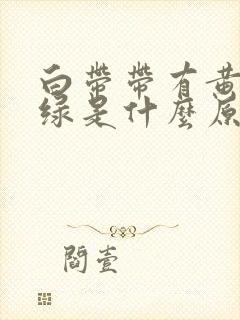 白带带有黄
绿是什麼原
閻壹